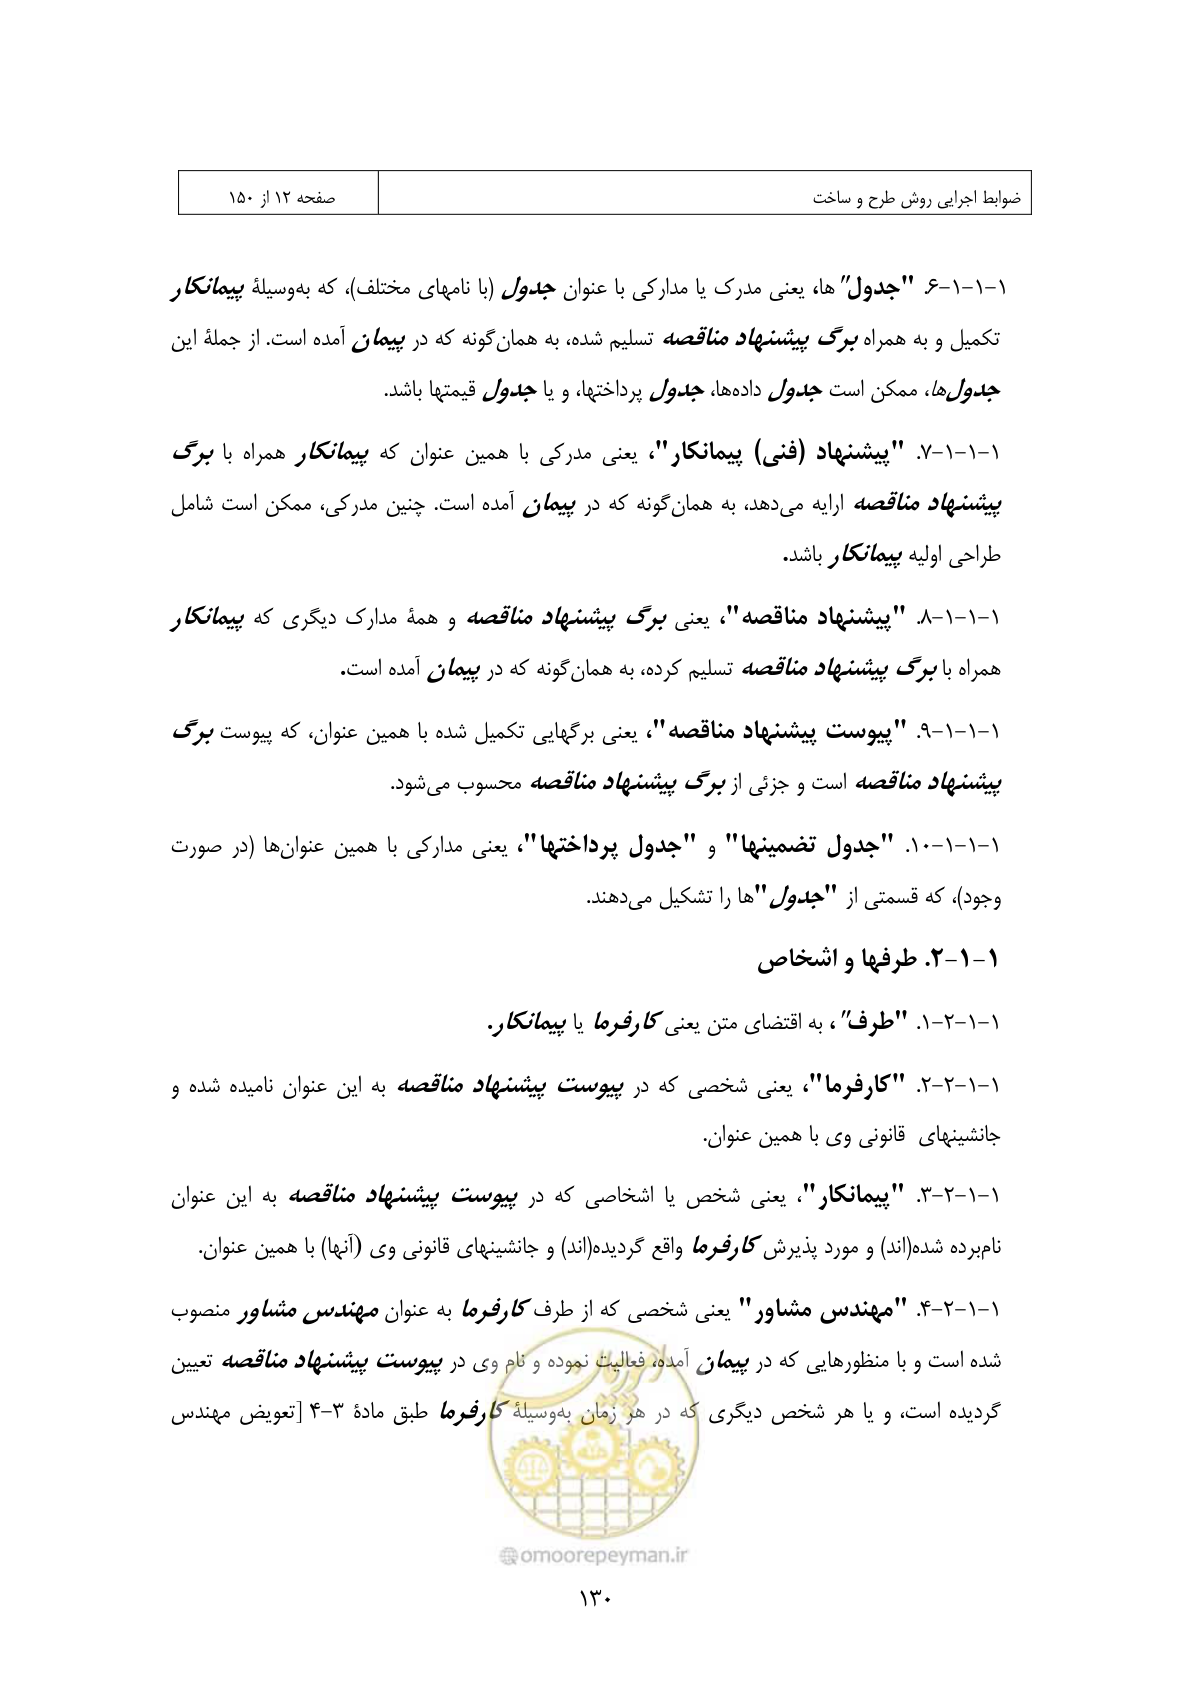 ضوابط اجرایی روش طرح و ساخت
صفحه ۱۲ از ۱۵۰
۱-۱-۱-۶. "جدول" ها، یعنی مدرک یا مدارکی با عنوان جدول (با نامهای مختلف)، که به‌وسیلهٔ پیمانکار
تکمیل و به همراه برگ پیشنهاد مناقصه تسلیم شده، به همان‌گونه که در پیمان آمده است. از جملهٔ این
جدول‌ها، ممکن است جدول داده‌ها، جدول پرداختها، و یا جدول قیمتها باشد.
۱-۱-۱-۷. "پیشنهاد (فنی) پیمانکار"، یعنی مدرکی با همین عنوان که پیمانکار همراه با برگ
پیشنهاد مناقصه ارایه می‌دهد، به همان‌گونه که در پیمان آمده است. چنین مدرکی، ممکن است شامل
طراحی اولیه پیمانکار باشد.
۱-۱-۱-۸. "پیشنهاد مناقصه"، یعنی برگ پیشنهاد مناقصه و همهٔ مدارک دیگری که پیمانکار
همراه با برگ پیشنهاد مناقصه تسلیم کرده، به همان‌گونه که در پیمان آمده است.
۱-۱-۱-۹. "پیوست پیشنهاد مناقصه"، یعنی برگهایی تکمیل شده با همین عنوان، که پیوست برگ
پیشنهاد مناقصه است و جزئی از برگ پیشنهاد مناقصه محسوب می‌شود.
۱-۱-۱-۱۰. "جدول تضمینها" و "جدول پرداختها"، یعنی مدارکی با همین عنوان‌ها (در صورت
وجود)، که قسمتی از "جدول"ها را تشکیل می‌دهند.
۱-۱-۲. طرفها و اشخاص
۱-۱-۲-۱. "طرف"، به اقتضای متن یعنی کارفرما یا پیمانکار.
۱-۱-۲-۲. "کارفرما"، یعنی شخصی که در پیوست پیشنهاد مناقصه به این عنوان نامیده شده و
جانشینهای قانونی وی با همین عنوان.
۱-۱-۲-۳. "پیمانکار"، یعنی شخص یا اشخاصی که در پیوست پیشنهاد مناقصه به این عنوان
نام‌برده شده(اند) و مورد پذیرش کارفرما واقع گردیده(اند) و جانشینهای قانونی وی (آنها) با همین عنوان.
۱-۱-۲-۴. "مهندس مشاور" یعنی شخصی که از طرف کارفرما به عنوان مهندس مشاور منصوب
شده است و با منظورهایی که در پیمان آمده، فعالیت نموده و نام وی در پیوست پیشنهاد مناقصه تعیین
گردیده است، و یا هر شخص دیگری که در هر زمان به‌وسیلهٔ کارفرما طبق مادهٔ ۳-۴ [تعویض مهندس
امور پیمان
@omoorepeyman.ir
۱۳۰